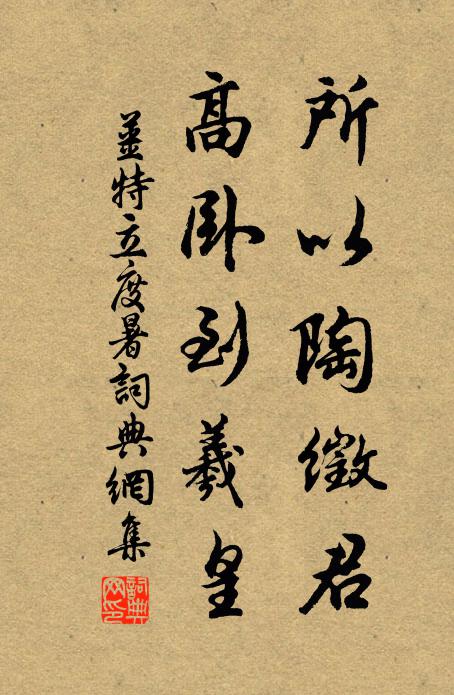 所以陶徵君
高卧到羲皇
姜特立度暑詞典網集
詞典网印